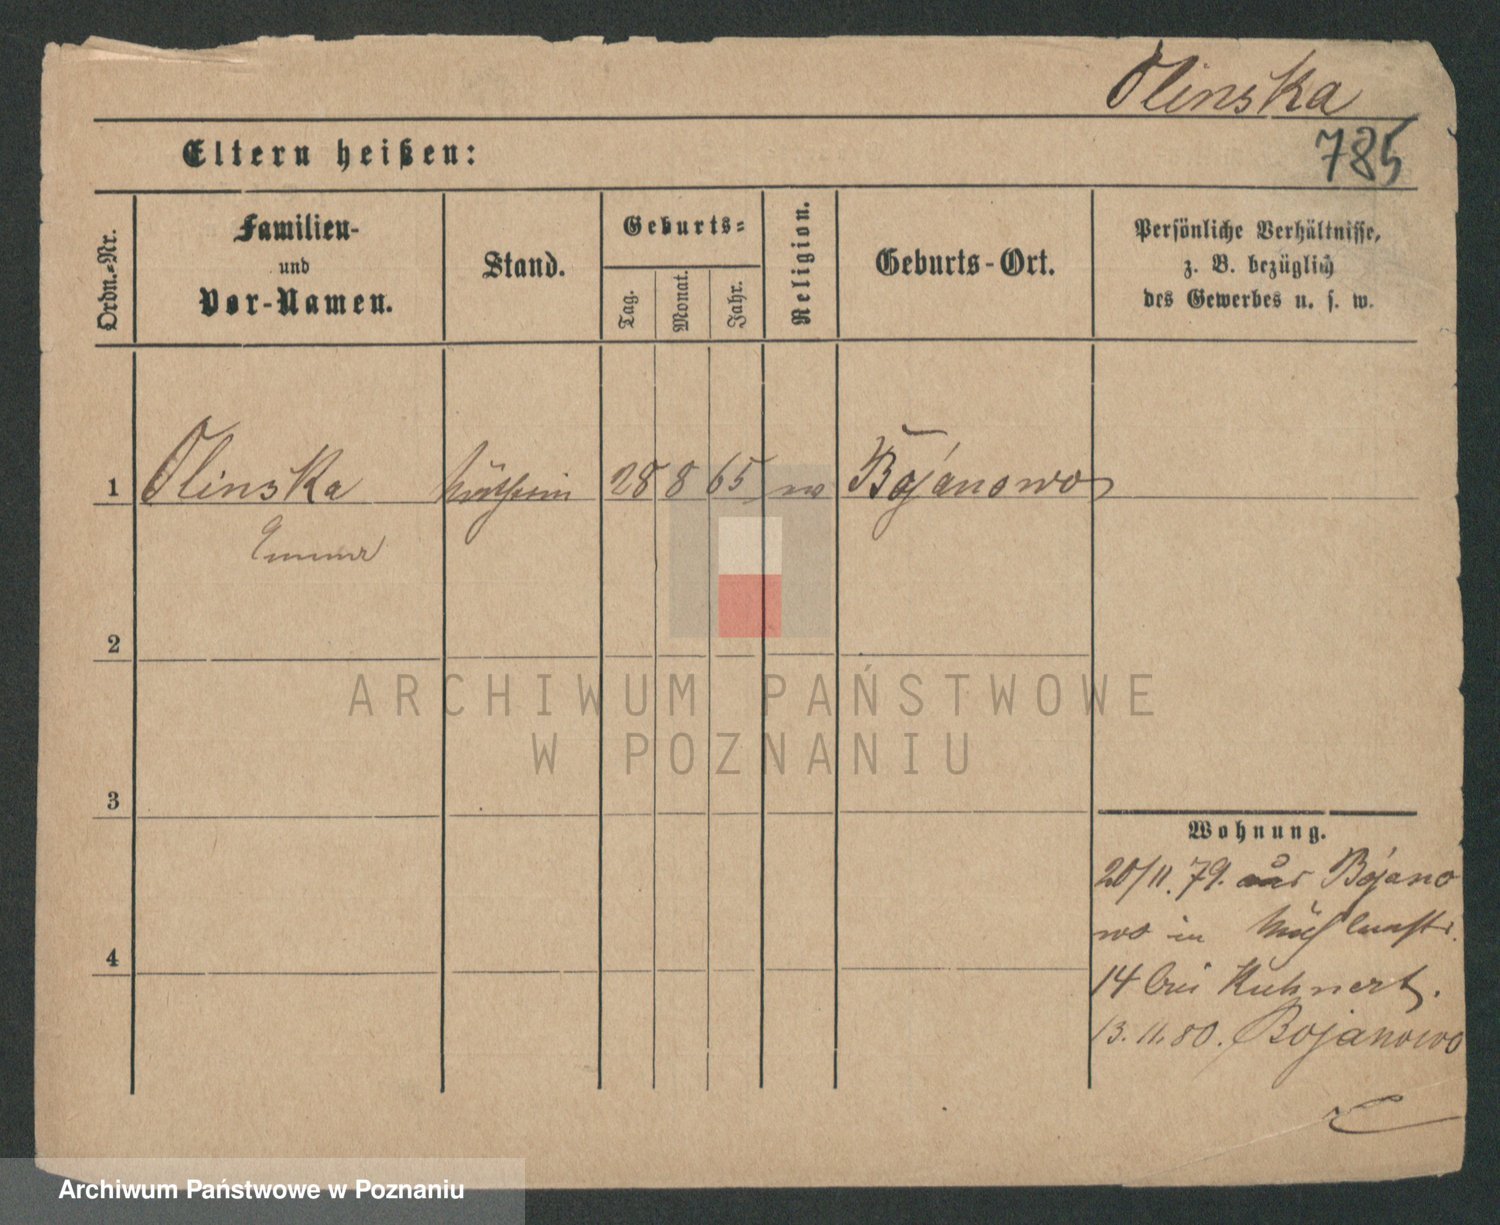 Olinska
785
Eltern heißen:
Ordn.-Nr.
Familien-
und
Vor-Namen.
Stand.
Geburts-
Tag.
Monat.
Jahr.
Religion.
Geburts-Ort.
Persönliche Verhältnisse,
z. B. bezüglich
des Gewerbes u. s. w.
1 Olinska 28 8 65 Bojanowo
Emma
2
3
4
ARCHIWUM PAŃSTWOWE
W POZNANIU
Wohnung.
20/11. 79. aus Bojano
wo in
14 bei Kuhnert.
13. 11. 80. Bojanowo
Archiwum Państwowe w Poznaniu